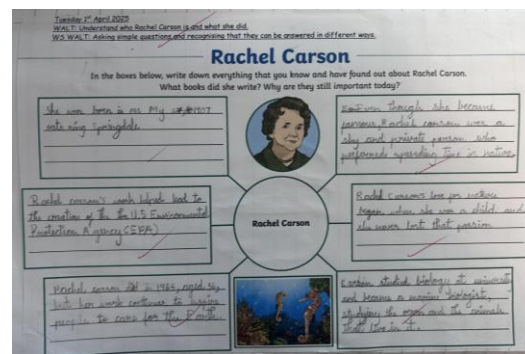 Tuesday 1st April 2025
WALT: Understand who Rachel Carson is and what she did.
WS WALT: Asking simple questions and recognising that they can be answered in different ways.
Rachel Carson
In the boxes below, write down everything that you know and have found out about Rachel Carson.
What books did she write? Why are they still important today?
She was born in on My 1907
Springdale
Even though she became
famous, Rachel carson was a
shy and private person who
preferred spending time in nature
Rachel carson's work helped lead to
the creation of the the U.S Environmental
Protection Agency (EPA)
Rachel Carson
Rachel Carson's love for
began when she was a child and
she never lost that passion
Rachel carson in aged 56,
but her work continues to
people to care for the Earth.
studied biology at university
and became a marine biologist,
studying the and the animals
that live in it.